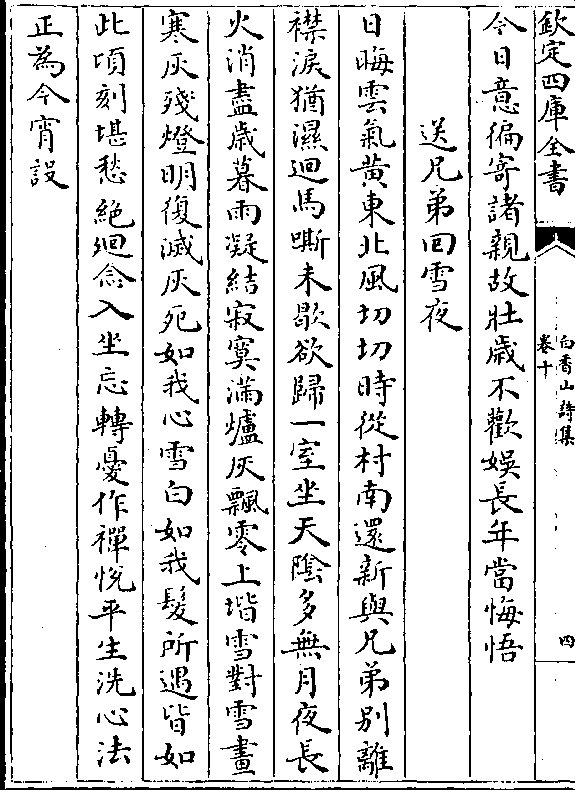 欽定四庫全書
白香山詩集
卷十
四
今日意徧寄諸親故壯歲不歡娛長年當悔悟
送兄弟回雪夜
日晦雲氣黄東北風切切時從村南還新與兄弟别離
襟淚猶濕迴馬嘶未歇欲歸一室坐天陰多無月夜長
火消盡歲暮雨凝結寂寞滿爐灰飄零上堦雪對雪畫
寒灰殘燈明復滅灰死如我心雪白如我髮所遇皆如
此頃刻堪愁絶迴念入坐忘轉憂作禪悅平生洗心法
正為今宵設